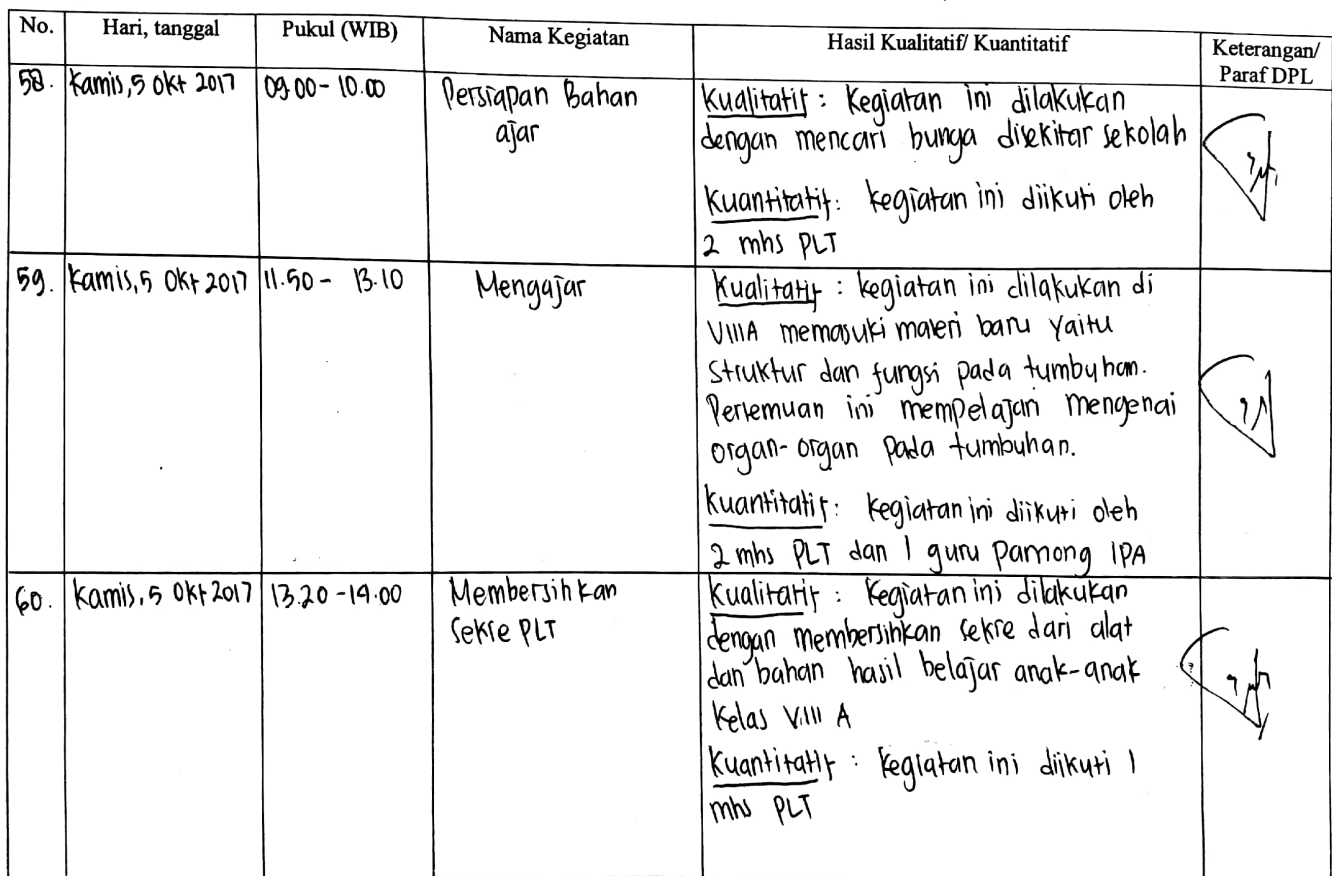 No. Hari, tanggal Pukul (WIB) Nama Kegiatan Hasil Kualitatif/ Kuantitatif Keterangan/
Paraf DPL
58. Kamis, 5 Okt 2017 09.00 - 10.00 Persiapan Bahan
ajar
Kualitatif : Kegiatan ini dilakukan
dengan mencari bunga disekitar sekolah
Kuantitatif: kegiatan ini diikuti oleh
2 mhs PLT
59. Kamis, 5 Okt 2017 11.50 - 13.10 Mengajar
Kualitatif : kegiatan ini dilakukan di
VIIIA memasuki materi baru yaitu
struktur dan fungsi pada tumbuhan.
Pertemuan ini mempelajari mengenai
organ-organ pada tumbuhan.
Kuantitatif: kegiatan ini diikuti oleh
2 mhs PLT dan 1 guru pamong IPA
60. Kamis, 5 Okt 2017 13.20 - 14.00 Membersihkan
Sekre PLT
Kualitatif : Kegiatan ini dilakukan
dengan membersihkan sekre dari alat
dan bahan hasil belajar anak-anak
Kelas VIII A
Kuantitatif : Kegiatan ini diikuti 1
mhs PLT